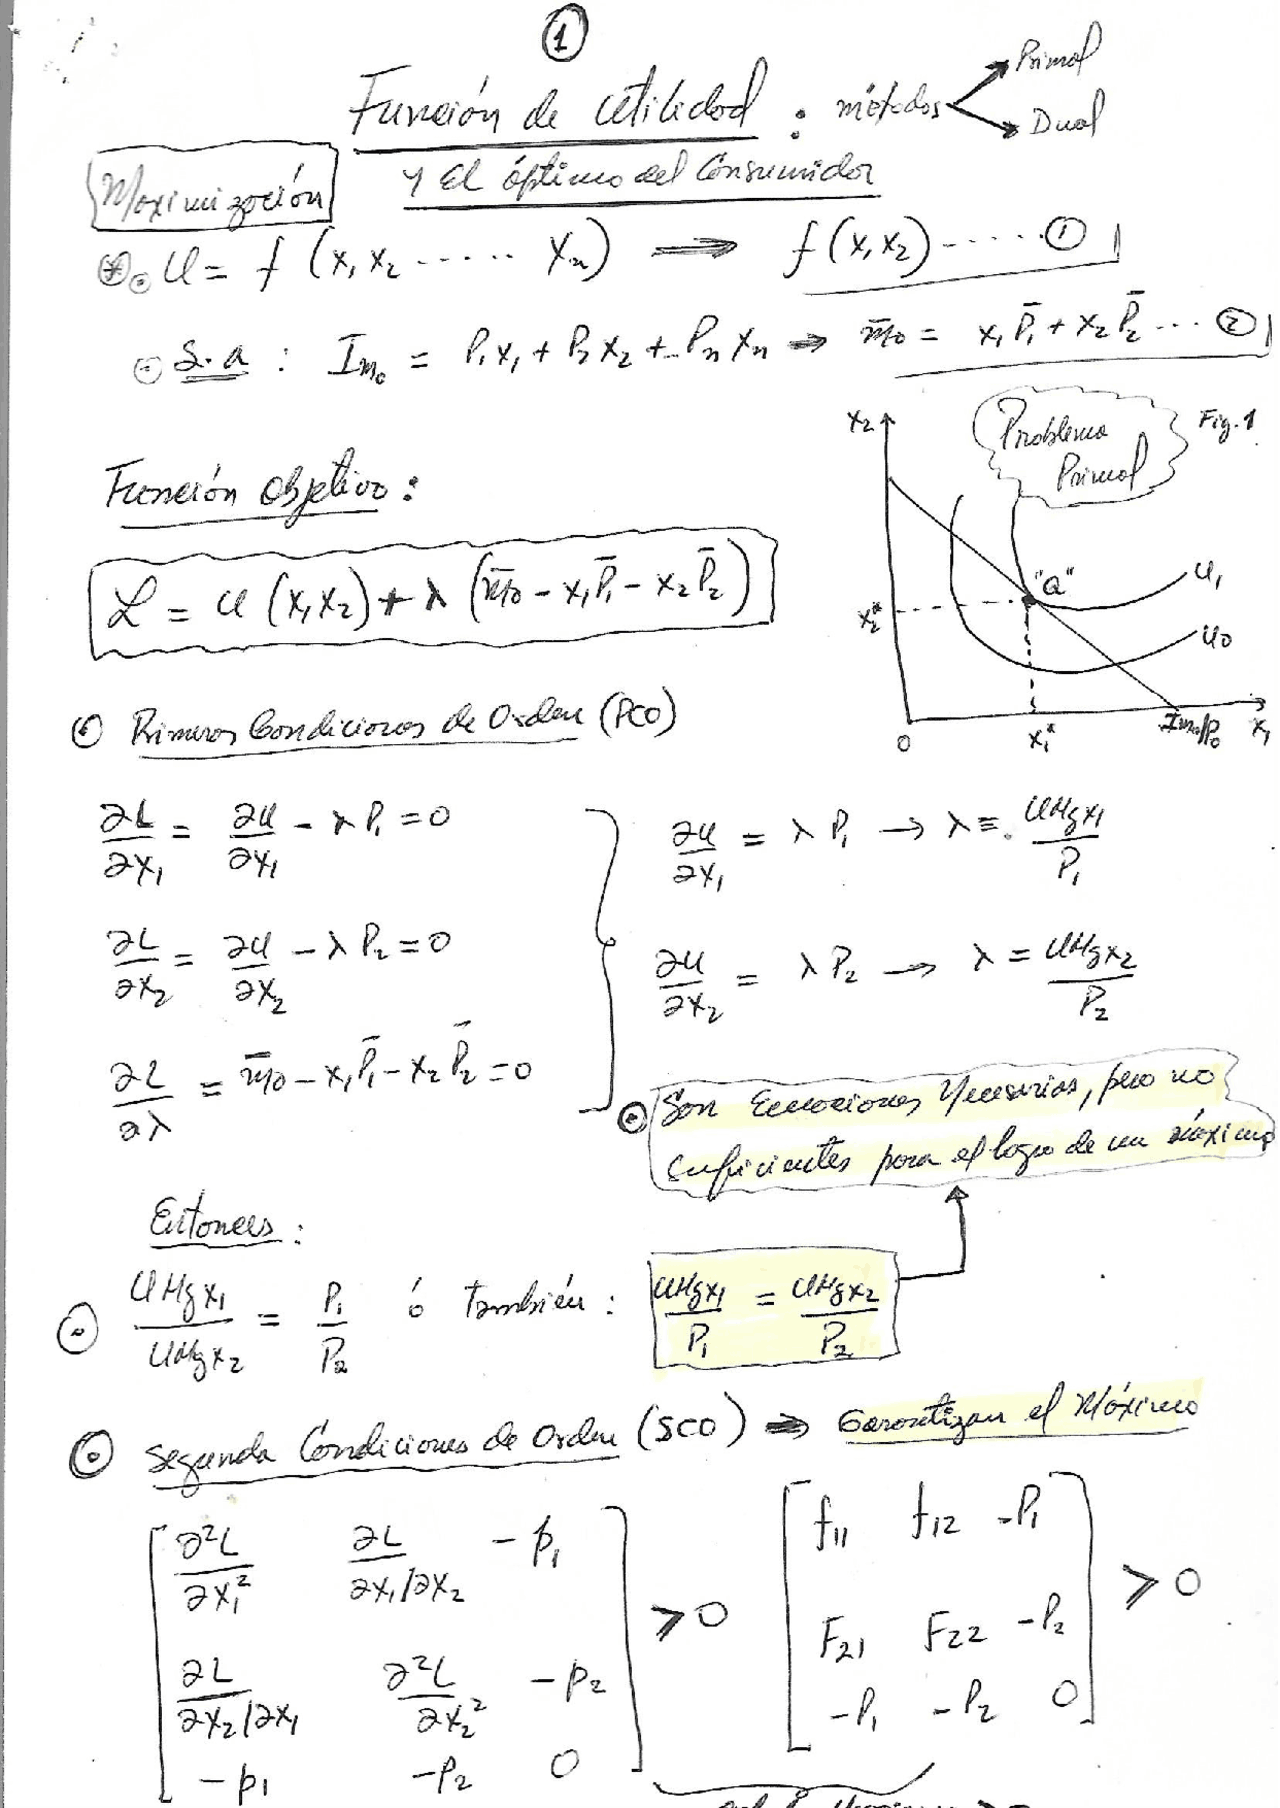 1
Función de Utilidad : métodos → Primal
→ Dual
Maximización
y El óptimo del Consumidor
U = f (x₁ x₂ ...... xₙ) ⟹ f (x₁ x₂) ...... ①
S.a : Im₀ = P₁x₁ + P₂x₂ + Pₙxₙ ⇒ m̄₀ = x₁P̄₁ + x₂P̄₂ ... ②
Función objetivo :
ℒ = U (x₁x₂) + λ (m̄₀ - x₁P̄₁ - x₂P̄₂)
Problema
Primal
Fig. 1
x₂
"a"
U₁
U₀
x₂*
0
x₁*
Im₀/P₀
x₁
Primeras Condiciones de Orden (PCO)
∂L/∂x₁ = ∂U/∂x₁ - λP₁ = 0
∂U/∂x₁ = λP₁ → λ = UMgx₁/P₁
∂L/∂x₂ = ∂U/∂x₂ - λP₂ = 0
∂U/∂x₂ = λP₂ → λ = UMgx₂/P₂
∂L/∂λ = m̄₀ - x₁P̄₁ - x₂P̄₂ = 0
Son Ecuaciones Necesarias, pero no
suficientes para el logro de un máximo
Entonces :
UMgx₁/UMgx₂ = P₁/P₂ ó también : UMgx₁/P₁ = UMgx₂/P₂
Segunda Condiciones de Orden (SCO) ⇒ Garantizan el Máximo
∂²L/∂x₁² ∂L/∂x₁/∂x₂ -p₁
∂L/∂x₂/∂x₁ ∂²L/∂x₂² -p₂
-p₁ -P₂ 0
> 0
f₁₁ f₁₂ -P₁
F₂₁ F₂₂ -P₂
-P₁ -P₂ 0
> 0